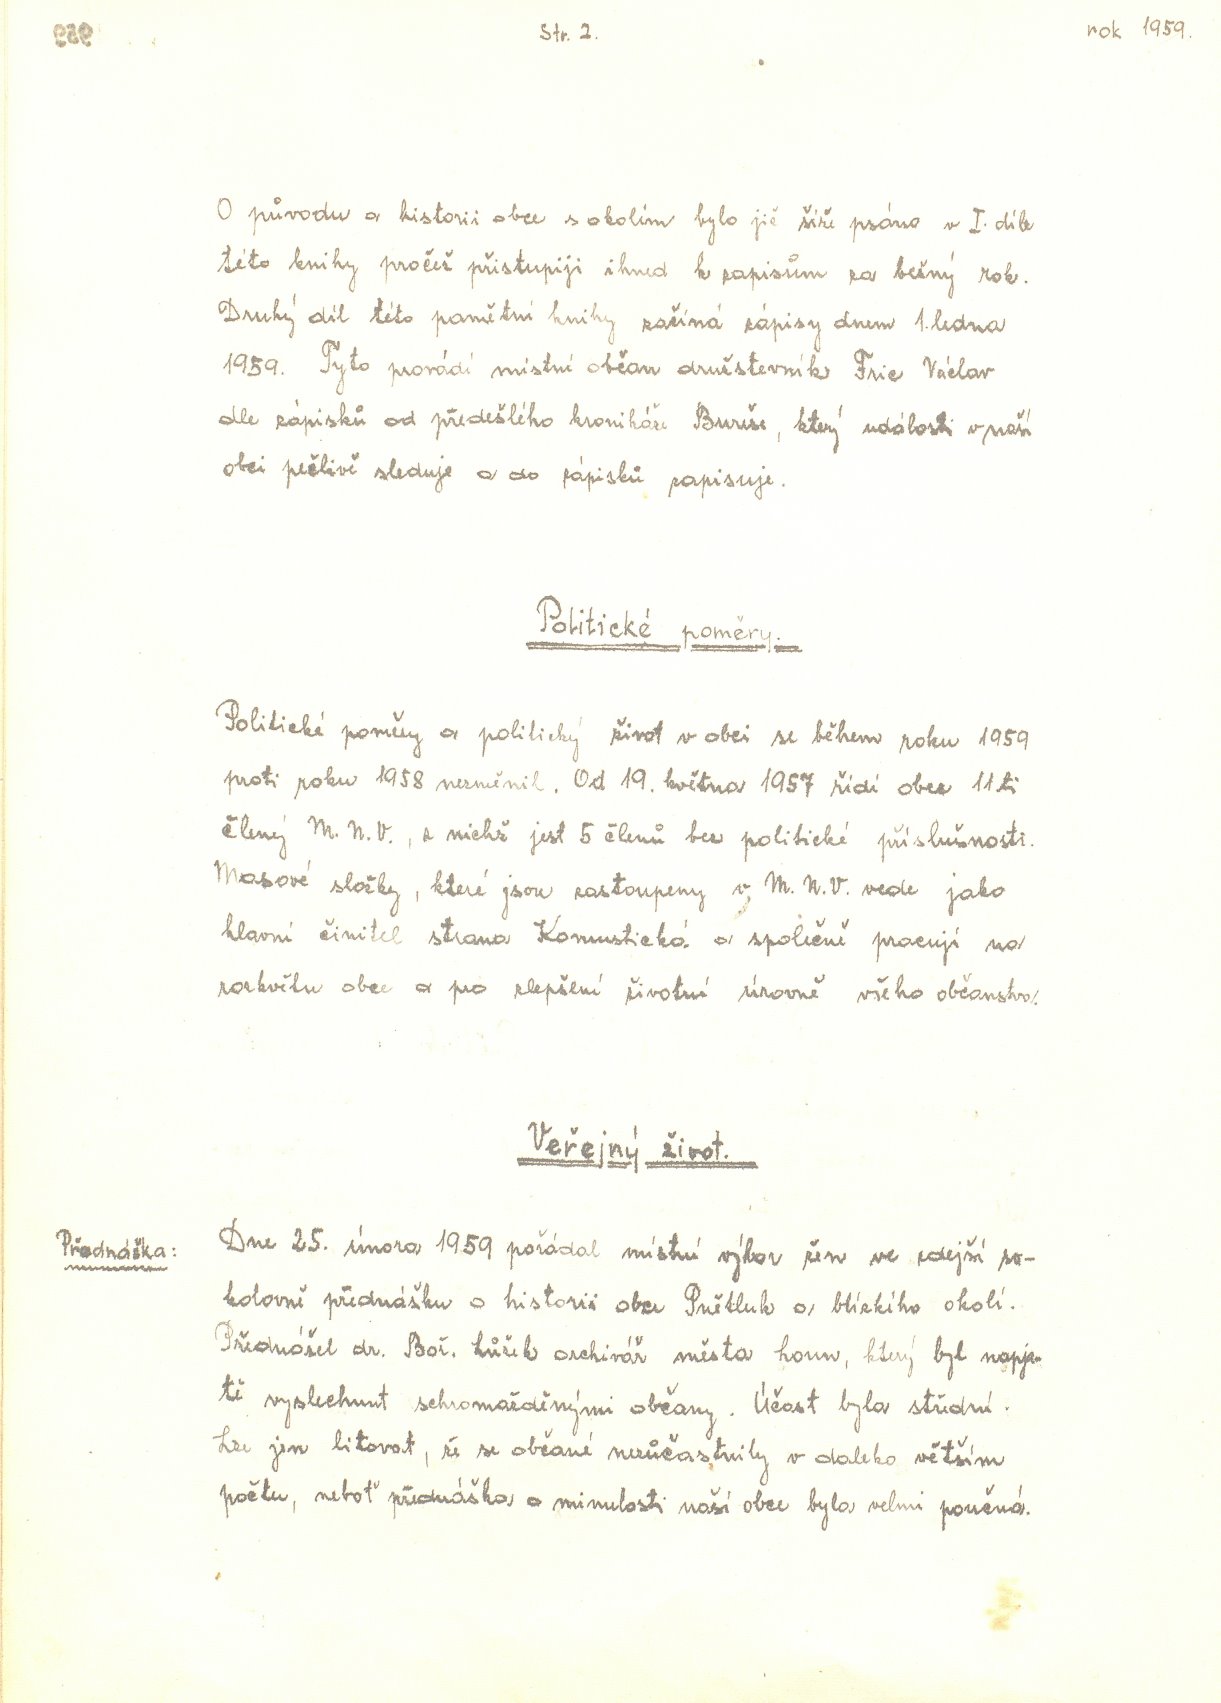 Str. 2.
rok 1959.
O původu a historii obce s okolím bylo již šíře psáno v I. díle
této knihy pročež přistupiji ihned k zapisům za bešný rok.
Druhý díl této pamětní knihy začíná zápisy dnem 1. ledna
1959. Tyto provádí místní občan družstevník Fric Václav
dle zápisků od předešlého kronikáře Bureše, který události v naší
obci pečlivě sleduje a do zápisků zapisuje.
Politické poměry.
Politické poměry a politický život v obci se během roku 1959
proti roku 1958 nezměnil. Od 19. května 1957 řídí obec 11ti
člený M. N. V., z nichž jest 5 členů bez politické příslušnosti.
Masové složky, které jsou zastoupeny v M. N. V. vede jako
hlavní činitel strana Komustická a společně pracují na
rozkvětu obce a pro zlepšení životní úrovně všeho občanstva.
Veřejný život.
Přednáška:
Dne 25. února 1959 pořádal místní výbor žen ve zdejší so-
kolovně přednášku o historii obce Pnětluk a blízkého okolí.
Přednášel dr. Boř. Lůžek archivář města Loun, který byl napja-
tě vyslechnut schromážděnými občany. Účast byla střední.
Lze jen litovat, že se občané nezůčastnily v daleko větším
počtu, neboť přednáška o minulosti naší obce byla velmi poučná.